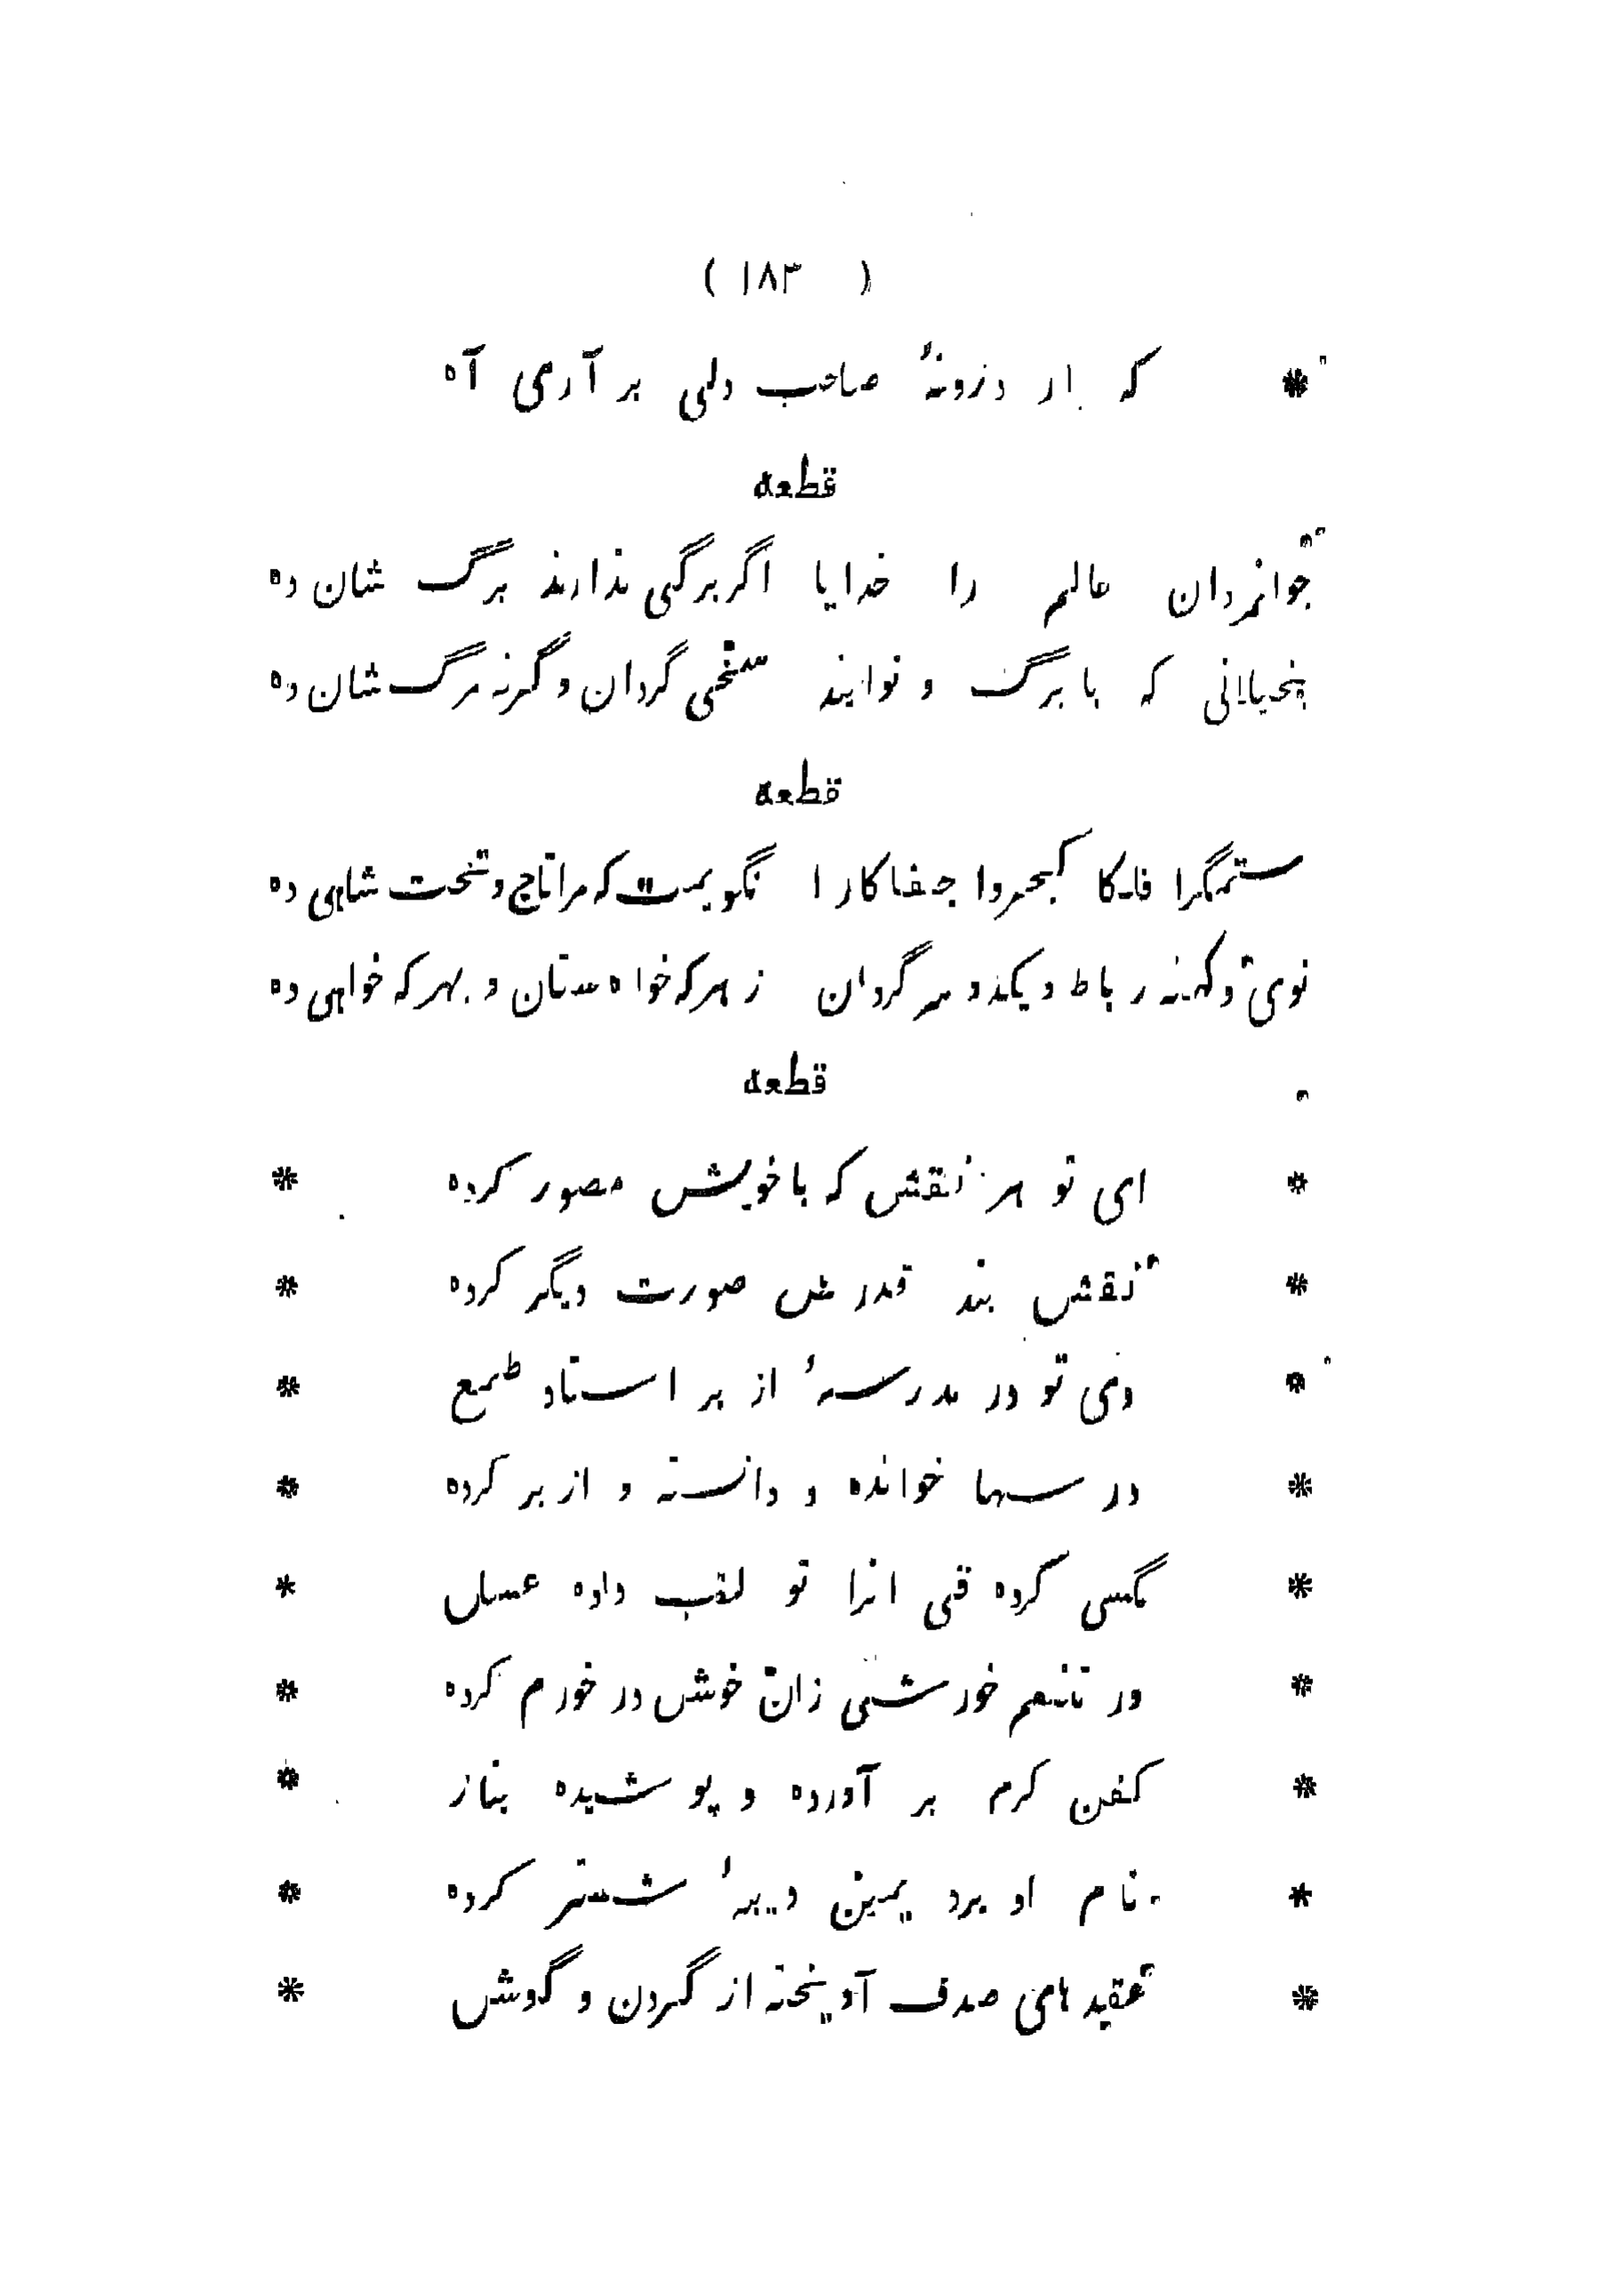 ( ۱۸۳ )
* که از درونهٔ صاحب دلی بر آری آه
قطعه
جوانمردان عالم را خدایا اگر برگی ندارند برگ شان ده
بخیلانی که با برگ و نوایند سخی گردان و گرنه مرگ شان ده
قطعه
ستمگرا فلکا کجروا جفاکارا نگویمت که مرا تاج و تخت شاهی ده
توی و کهنه رباط و یکدو سه گردان ز هر که خواه ستان و بهر که خواهی ده
قطعه
* ای تو هر نقش که با خویش مصور کرده *
* نقش بند قدرش صورت دیگر کرده *
* دی تو در مدرسهٔ از بر استاد طمع *
* درسها خوانده و دانسته و از بر کرده *
* مگسی کرده قی انرا تو لقب داده عسل *
* در تنعم خورشی زان خوش در خورم کرده *
* کفن کرم بر آورده و پوشیده بناز *
* نام او برد یمین دیبهٔ شستر کرده *
* عقدهای صدف آویخته از گردن و گوش *